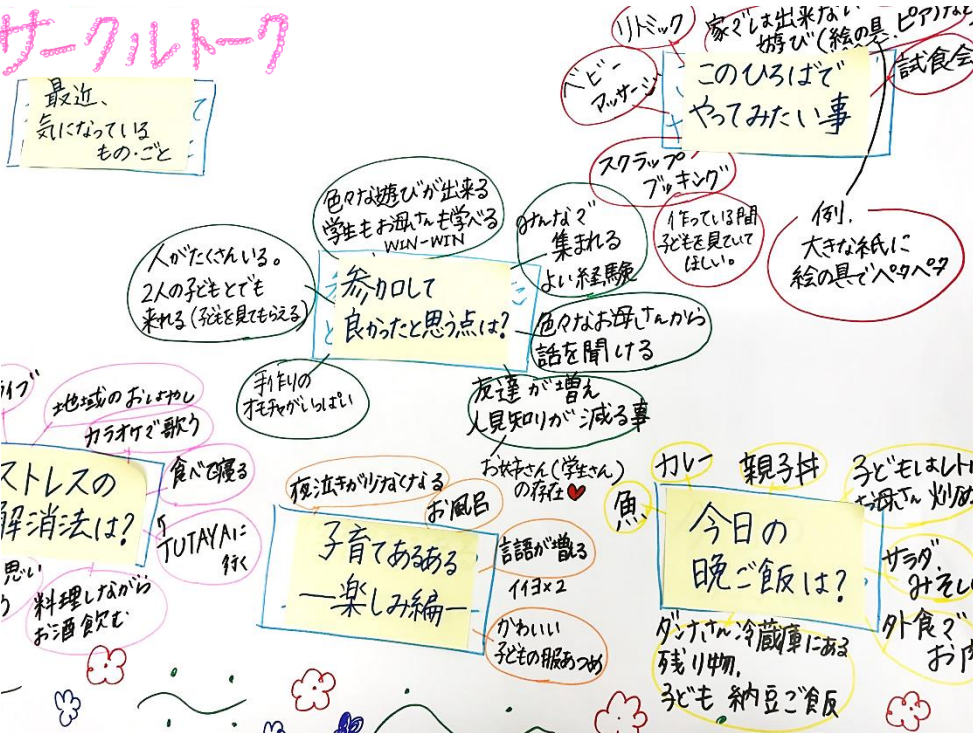 サークルトーク
最近、
気になっている
もの・ごと
リトミック
家では出来ない
遊び(絵の具、ピアノなど
試食会
ベビー
マッサージ
このひろばで
やってみたい事
スクラップ
ブッキング
作っている間
子どもを見ていて
ほしい。
例.
大きな紙に
絵の具でペタペタ
色々な遊びが出来る
学生もお母さんも学べる
WIN-WIN
みんなで
集まれる
よい経験
人がたくさんいる。
2人の子どもとでも
来れる(子どもを見てもらえる)
参加して
良かったと思う点は?
色々なお母さんから
話を聞ける
手作りの
オモチャがいっぱい
友達が増え
人見知りが減る事
お姉さん(学生さん)
の存在♥
ライブ
地域のおはやし
カラオケで歌う
食べて寝る
ストレスの
解消法は?
TUTAYAに
行く
思い
料理しながら
お酒飲む
夜泣きが少なくなる
お風呂
子育てあるある
―楽しみ編―
言語が増える
イイヨ×2
かわいい
子どもの服あつめ
カレー
親子丼
子どもはレト
お母さん 炒め
魚
今日の
晩ご飯は?
サラダ、
みそし
外食で
お肉
ダンナさん冷蔵庫にある
残り物、
子ども 納豆ご飯